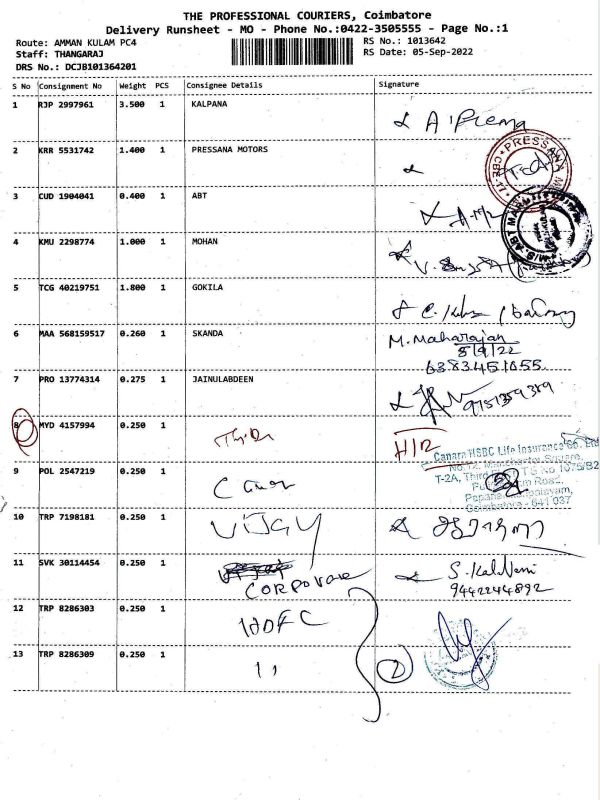 THE PROFESSIONAL COURIERS, Coimbatore
Delivery Runsheet - MO - Phone No.:0422-3505555 - Page No.:1
Route: AMMAN KULAM PC4 RS No.: 1013642
Staff: THANGARAJ RS Date: 05-Sep-2022
DRS No.: DCJB101364201
S No Consignment No Weight PCS Consignee Details Signature
1 RJP 2997961 3.500 1 KALPANA A. Prema
2 KRR 5531742 1.400 1 PRESSANA MOTORS
PRESSANA
3 CUD 1904041 0.400 1 ABT
M/S. ABT
4 KMU 2298774 1.000 1 MOHAN
5 TCG 40219751 1.800 1 GOKILA
6 MAA 568159517 0.260 1 SKANDA M. Maharajan
5/9/22
6383451055
7 PRO 13774314 0.275 1 JAINULABDEEN 9751359389
8 MYD 4157994 0.250 1 H/R
Canara HSBC Life Insurance Co. Ltd
No.12, Manchester Square,
T-2A, Third T S No 1075/B2
Road,
Coimbatore - 641 037
9 POL 2547219 0.250 1
10 TRP 7198181 0.250 1 VIJAY
11 SVK 30114454 0.250 1 CORPORATE S. Kalvani
9442244892
12 TRP 8286303 0.250 1 HDFC
13 TRP 8286309 0.250 1 11 2